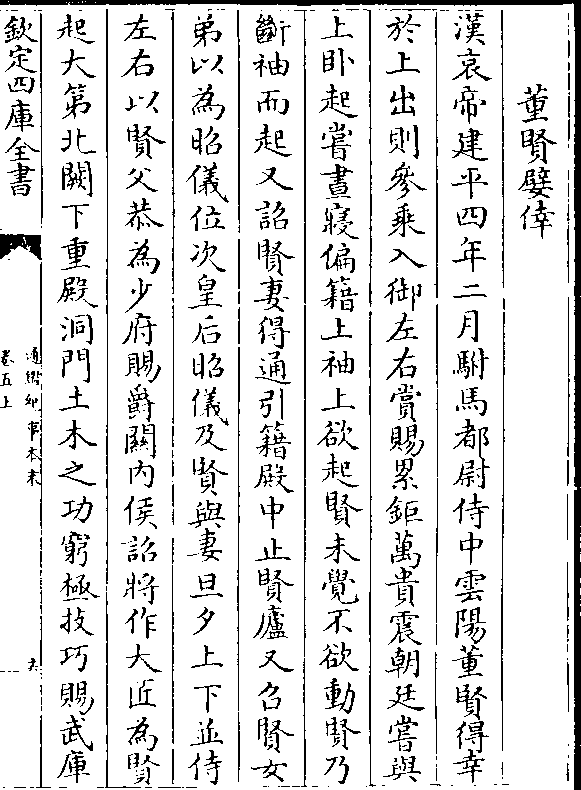 董賢嬖倖
漢哀帝建平四年二月駙馬都尉侍中雲陽董賢得幸
於上出則參乘入御左右賞賜累鉅萬貴震朝廷嘗與
上卧起嘗晝寢偏籍上袖上欲起賢未覺不欲動賢乃
斷袖而起又詔賢妻得通引籍殿中止賢廬又召賢女
弟以為昭儀位次皇后昭儀及賢與妻旦夕上下並侍
左右以賢父恭為少府賜爵關內侯詔將作大匠為賢
起大第北闕下重殿洞門土木之功窮極技巧賜武庫
欽定四庫全書
通鑑紀事本末
卷五上